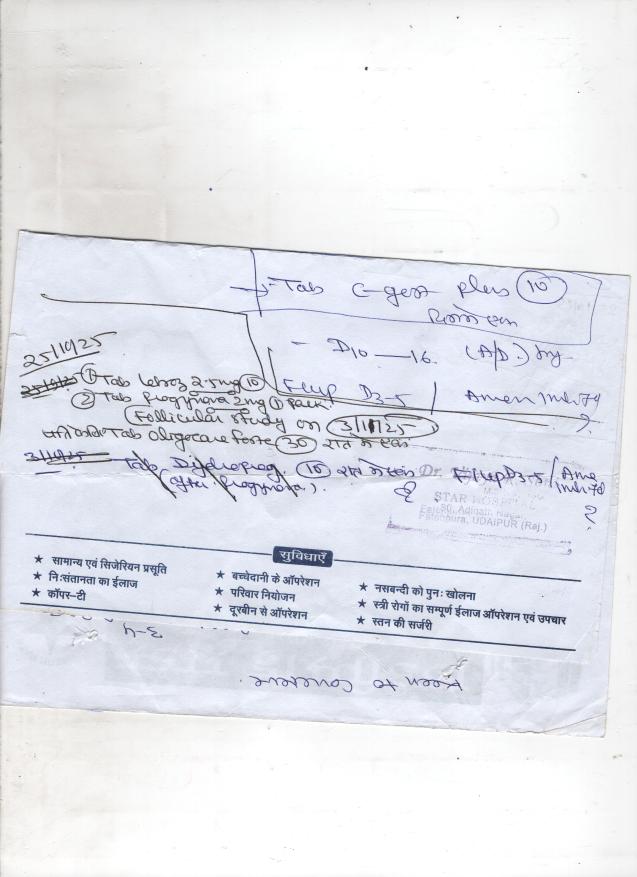 → Tab C-gest plus 10
दिन मे एक
- D10 — 16. (A/D)
F/up D3-5 / Amen
25/10/25
① Tab Letroz 2.5mg 10
② Tab Progynova 2mg ① Pack.
Follicular study on 3/11/25
Tab Oligocare forte 30 रात मे एक
3/11/25
Tab Dydroprog. 10 रात मे एक Dr.
(after Progynova) F/up D3-5 / Ame
?
STAR
Adinath Nagar
Fatehpura, UDAIPUR (Raj.)
सुविधाएँ
★ सामान्य एवं सिजेरियन प्रसूति
★ बच्चेदानी के ऑपरेशन
★ नसबन्दी को पुनः खोलना
★ निःसंतानता का ईलाज
★ परिवार नियोजन
★ स्त्री रोगों का सम्पूर्ण ईलाज ऑपरेशन एवं उपचार
★ कॉपर-टी
★ दूरबीन से ऑपरेशन
★ स्तन की सर्जरी
3-4
Keen to conceive.